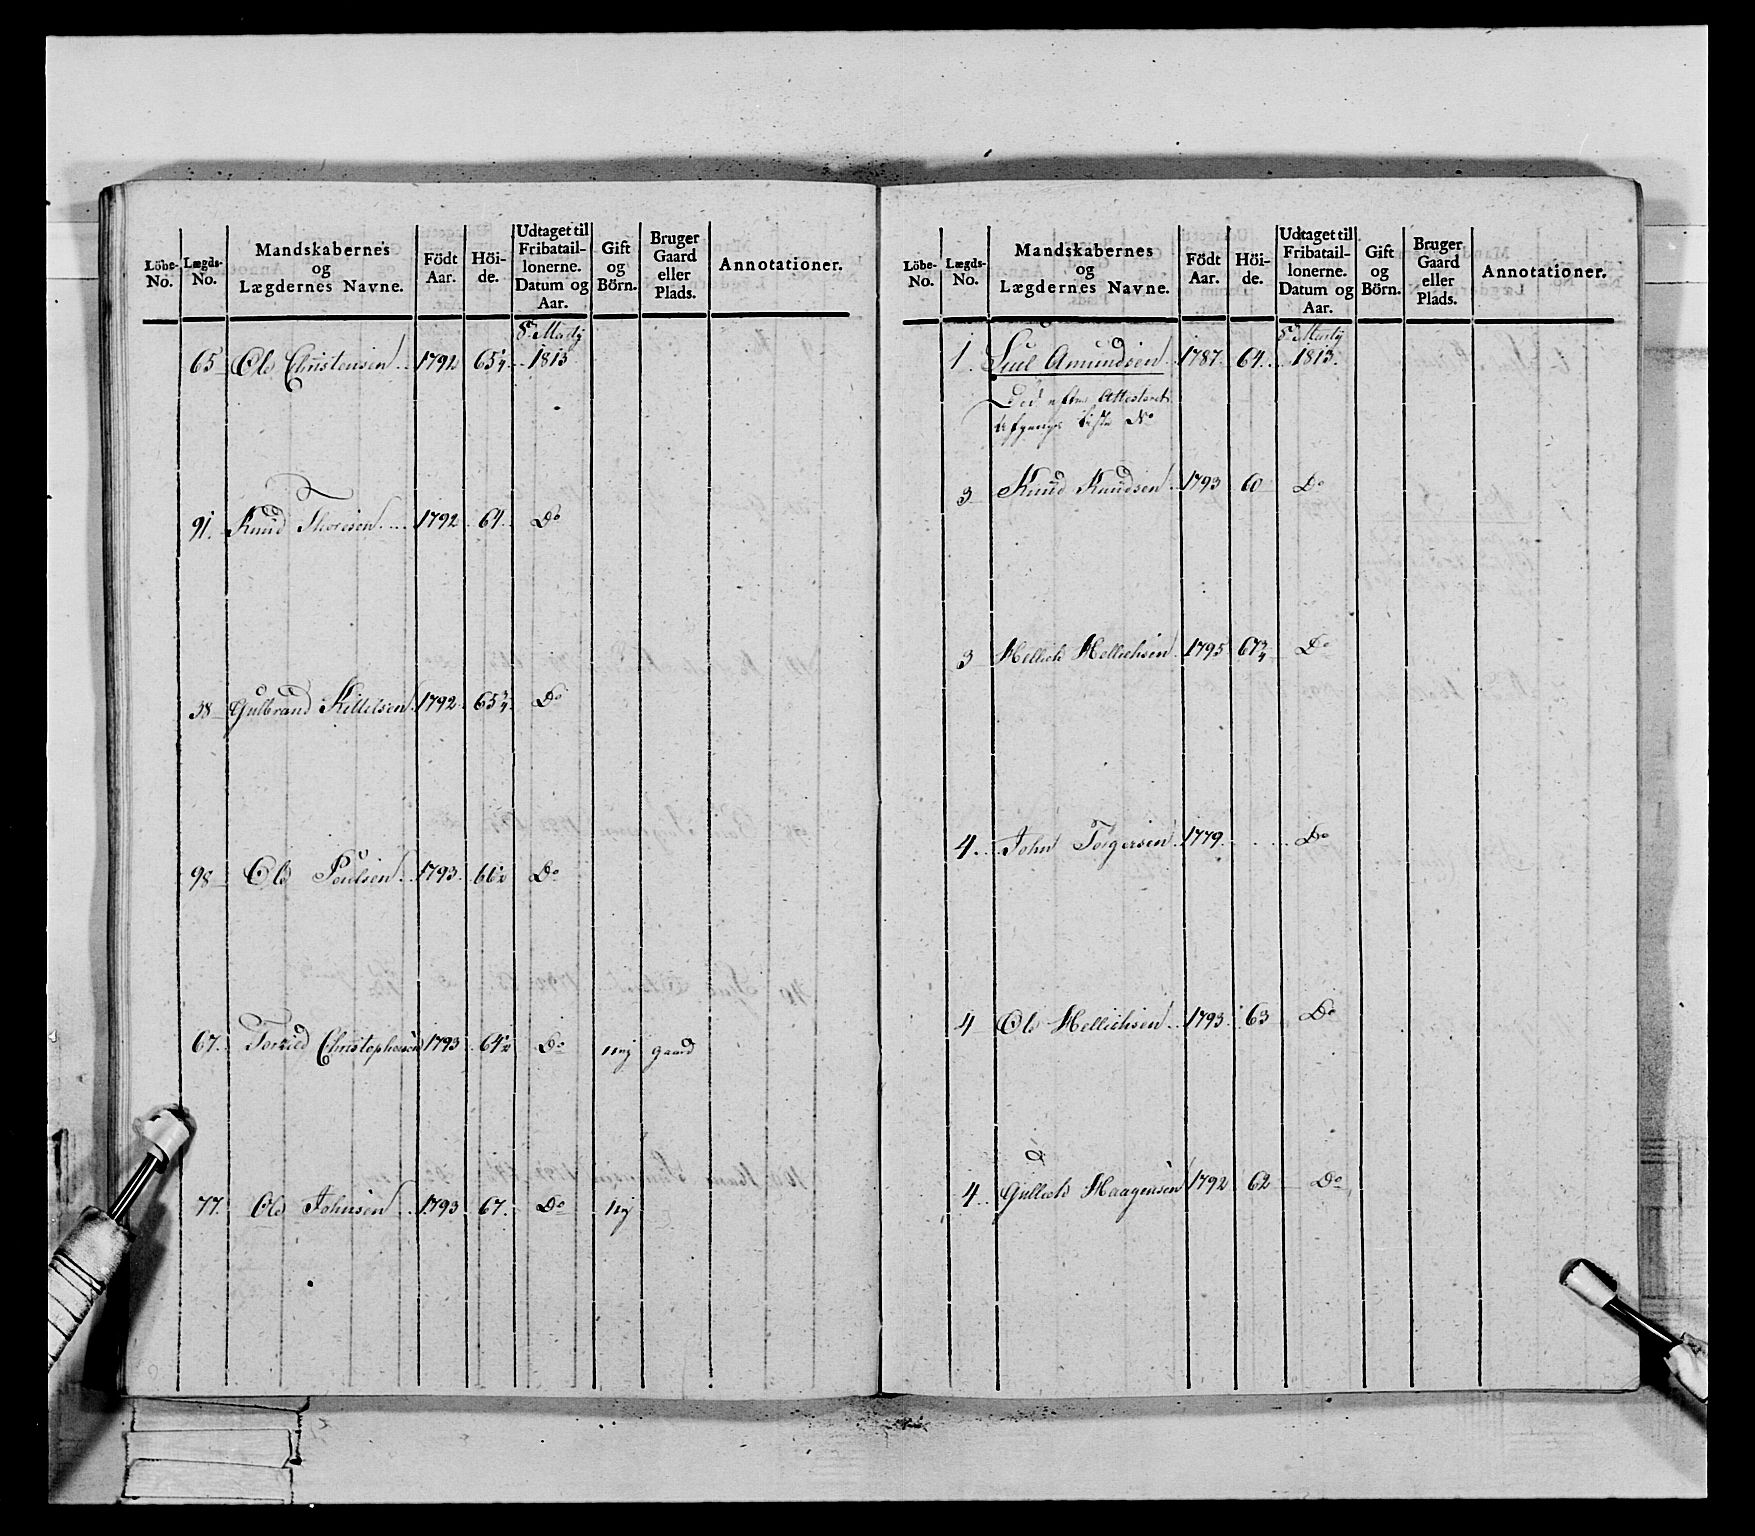 Löbe- No. Lægds- No. Mandskabernes og Lægdernes Navne. Födt Aar. Höi- de. Udtaget til Fribatail- lonerne. Datum og Aar. Gift og Börn. Bruger Gaard eller Plads. Annotationer.
65 Ole Christensen 1792 65¼ 1813
91. Knud Thoresen 1792 64 Do
38 Gulbrand Kittelsen 1792 65¾ Do
98 Ole Poulsen 1793 66½ Do
67. Christophersen 1793 64½ Do nej gaard
77. Ole Johnsen 1793 67. Do nej
Löbe- No. Lægds- No. Mandskabernes og Lægdernes Navne. Födt Aar. Höi- de. Udtaget til Fribatail- lonerne. Datum og Aar. Gift og Börn. Bruger Gaard eller Plads. Annotationer.
1. Amundsen 1787. 64. 1813.
Död efter Attesteret
Afgangs Liste No
3 Knud Knudsen 1793 60 Do
3 Hellich Hellichsen 1795 67¾ Do
4. John Torgersen 1779 Do
4 Ole Hellichsen 1793 63 Do
4. Gullich Haagensen 1792 62 Do